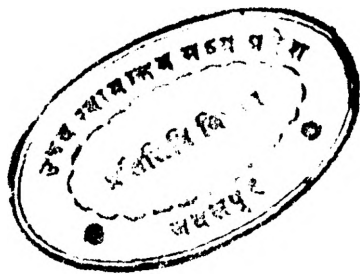 उच्च न्यायालय मध्य प्रदेश
प्रतिलिपि विभाग
जबलपुर